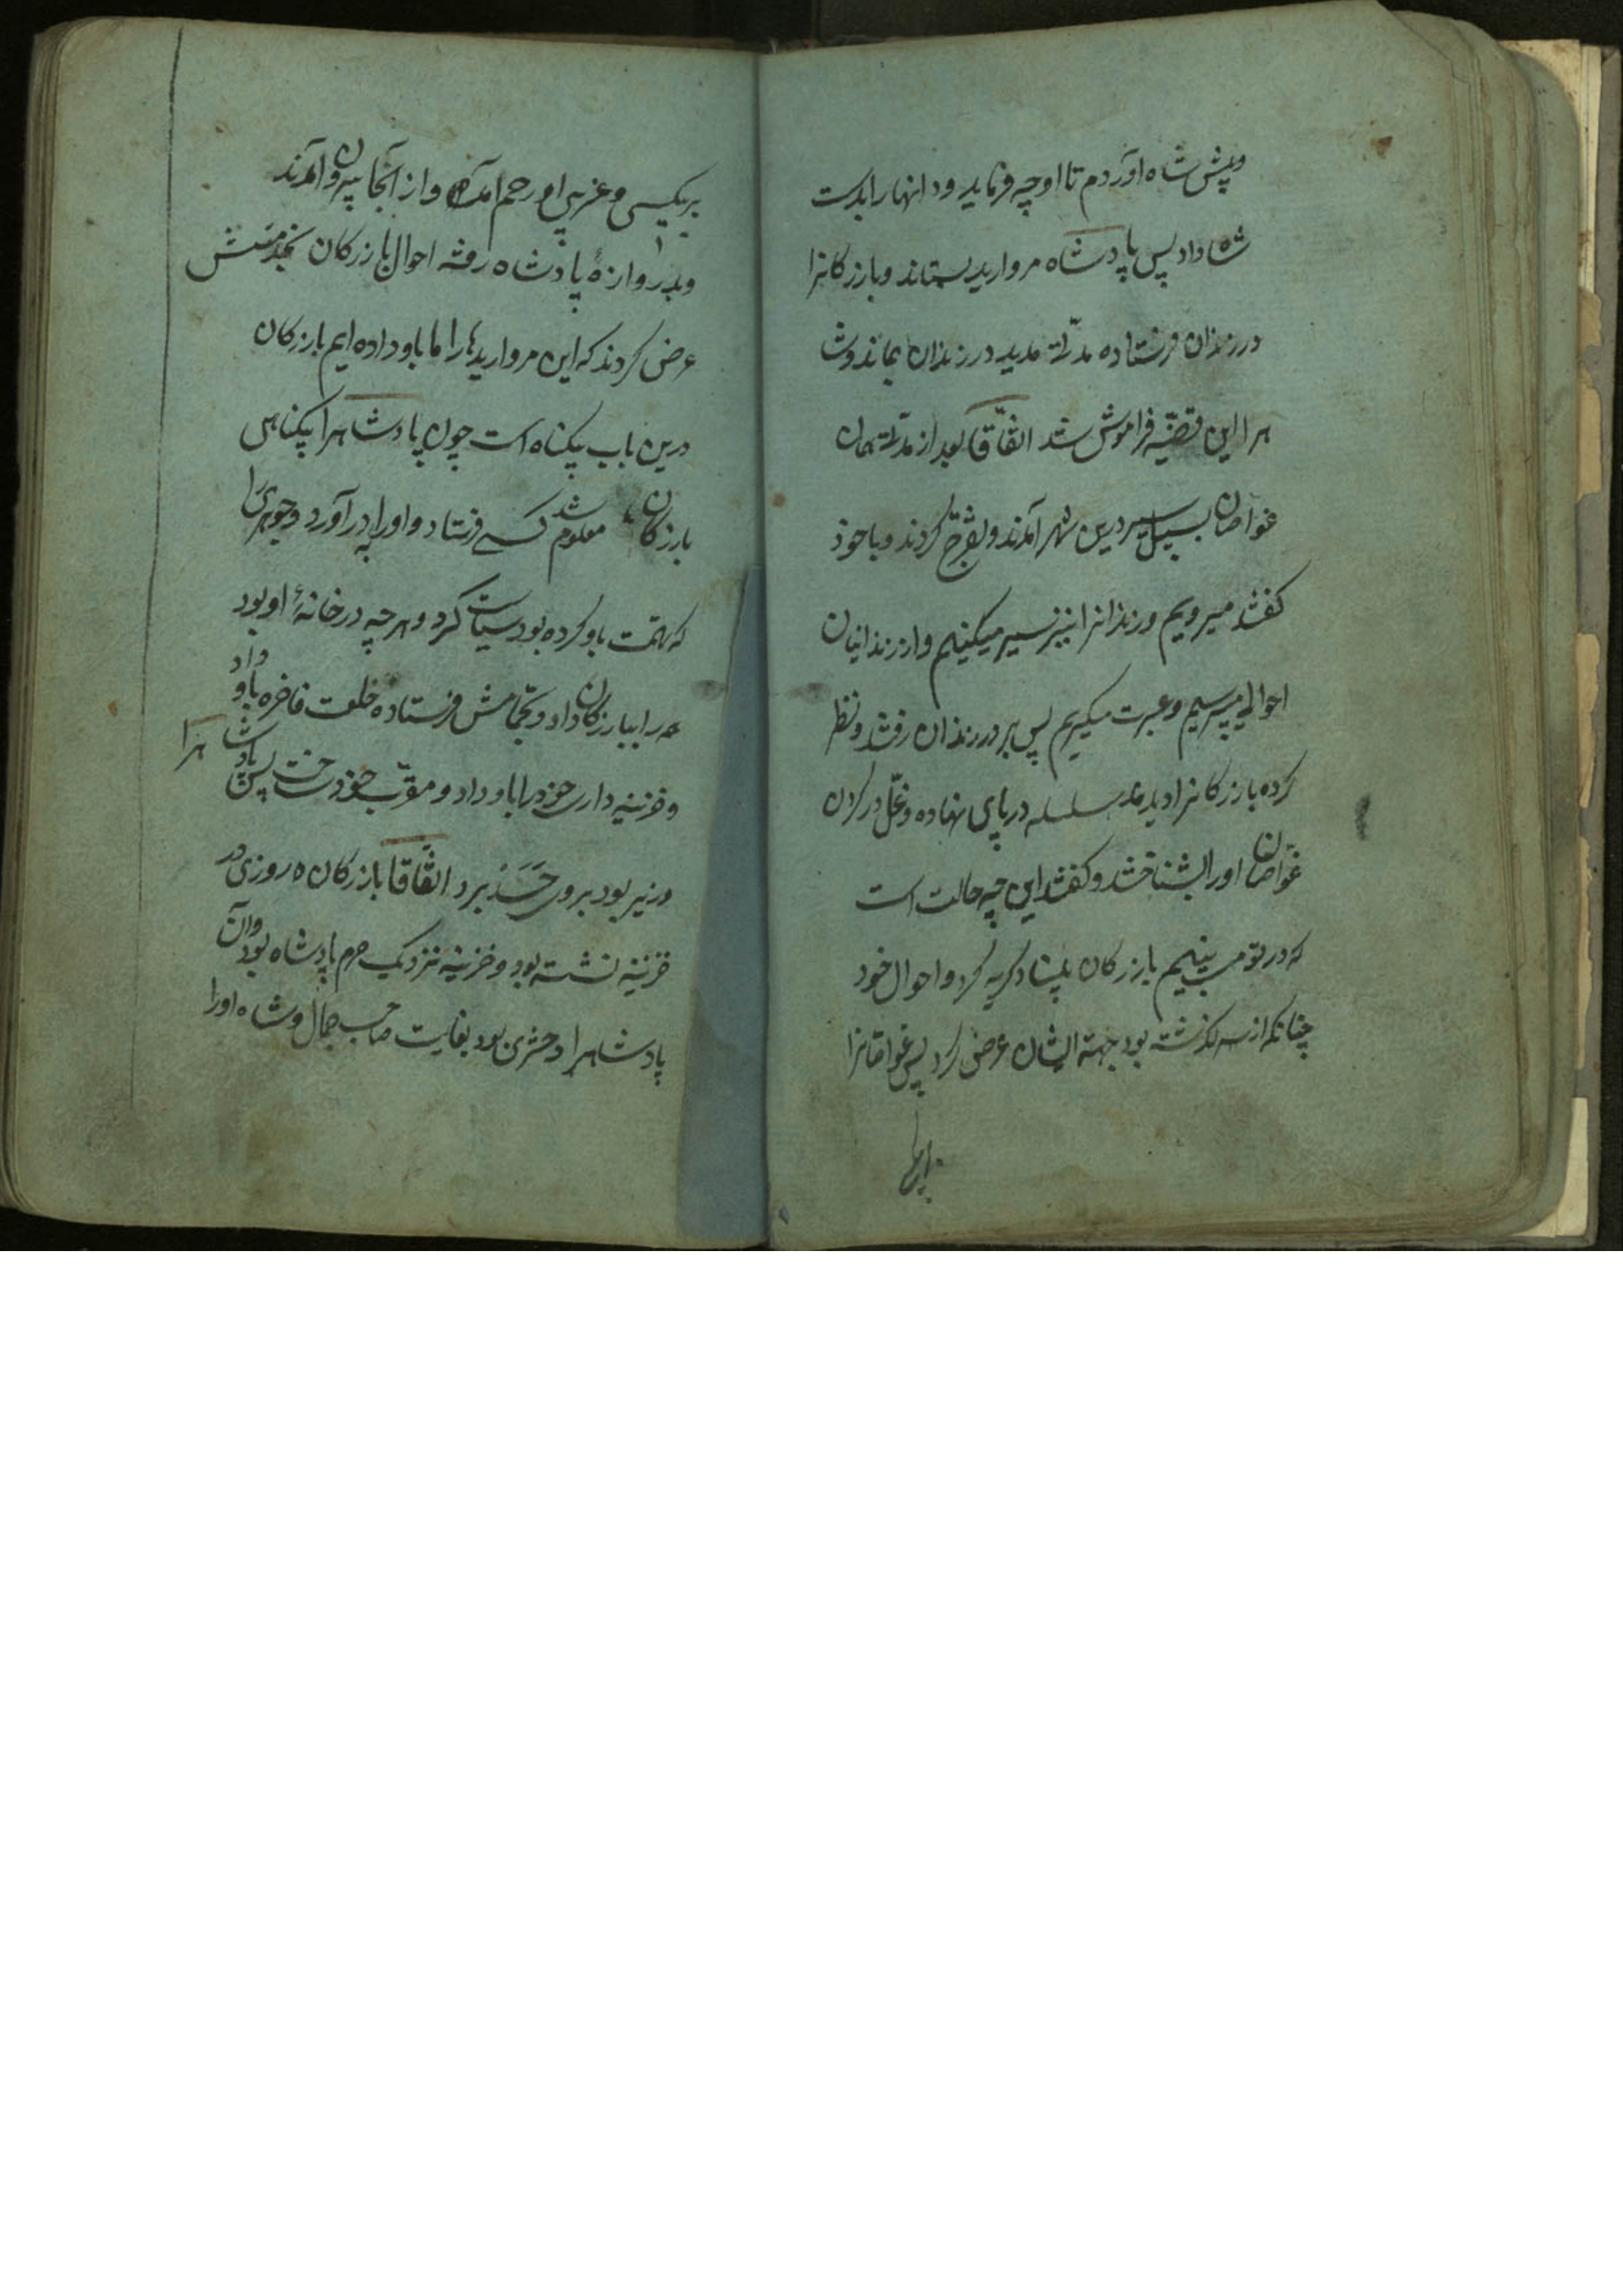 و پیش شاه آوردم تا او چه فرماید و دانها را بدست
شاه داد پس پادشاه مروارید بستاند و بازرکانرا
در زندان فرستاده مدّتے مدید در زندان بماند و شا
هرا این قضیّه فراموش شد اتفّاقا بعد از مدّتے همان
غواصان بسبیل سیر درین شهر آمدند و تفرّج کردند و با خود
کفتند میرویم و زندانرا نیز سیر میکنیم و از زندانیان
احوالی میپرسیم و عبرت میکیریم پس بر در زندان رفتند و نظر
کرده بازرکانرا دیدند سلسله در پای نهاده و غلّ در کردن
غوّاصان او را بشناختند و کفتند این چه حالت است
که در تو می بینیم بازرکان بایشان کریه کرد و احوال خود
چنانکه از سر کذشته بود جهته ایشان عرض کرد پس غواصانرا
بر بیکسی و غریبی او رحم آمده و از آنجا بیرون آمدند
و بدروازهٔ پادشاه رفته احوال بازرکان بخدمتش
عرض کردند که این مرواریدها را ما باو داده ایم بازرکان
درین باب بیکناه است چون پادشاهرا بیکناهی
بازرکان معلوم شد کسے فرستاد و او را بدر آورد و جوهریرا
که تهمت باو کرده بود سیاست کرد و هر چه در خانهٔ او بود
همه را ببازرکان داد و بحمّامش فرستاده خلعت فاخره باو داد
و خزینه داری خود را باو داد و مقرّب خود ساخت پس پادشاهرا
وزیر بود بر وی حَسَدْ برد اتفّاقا بازرکان روزی در
خزینه نشسته بود و خزینه نزدیک حرم پادشاه بود و آن
پادشاهرا دختری بود بغایت صاحب جمال و شاه او را